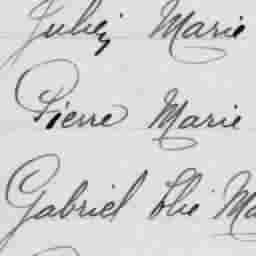 Julien Marie
Pierre Marie
Gabriel Elie Ma